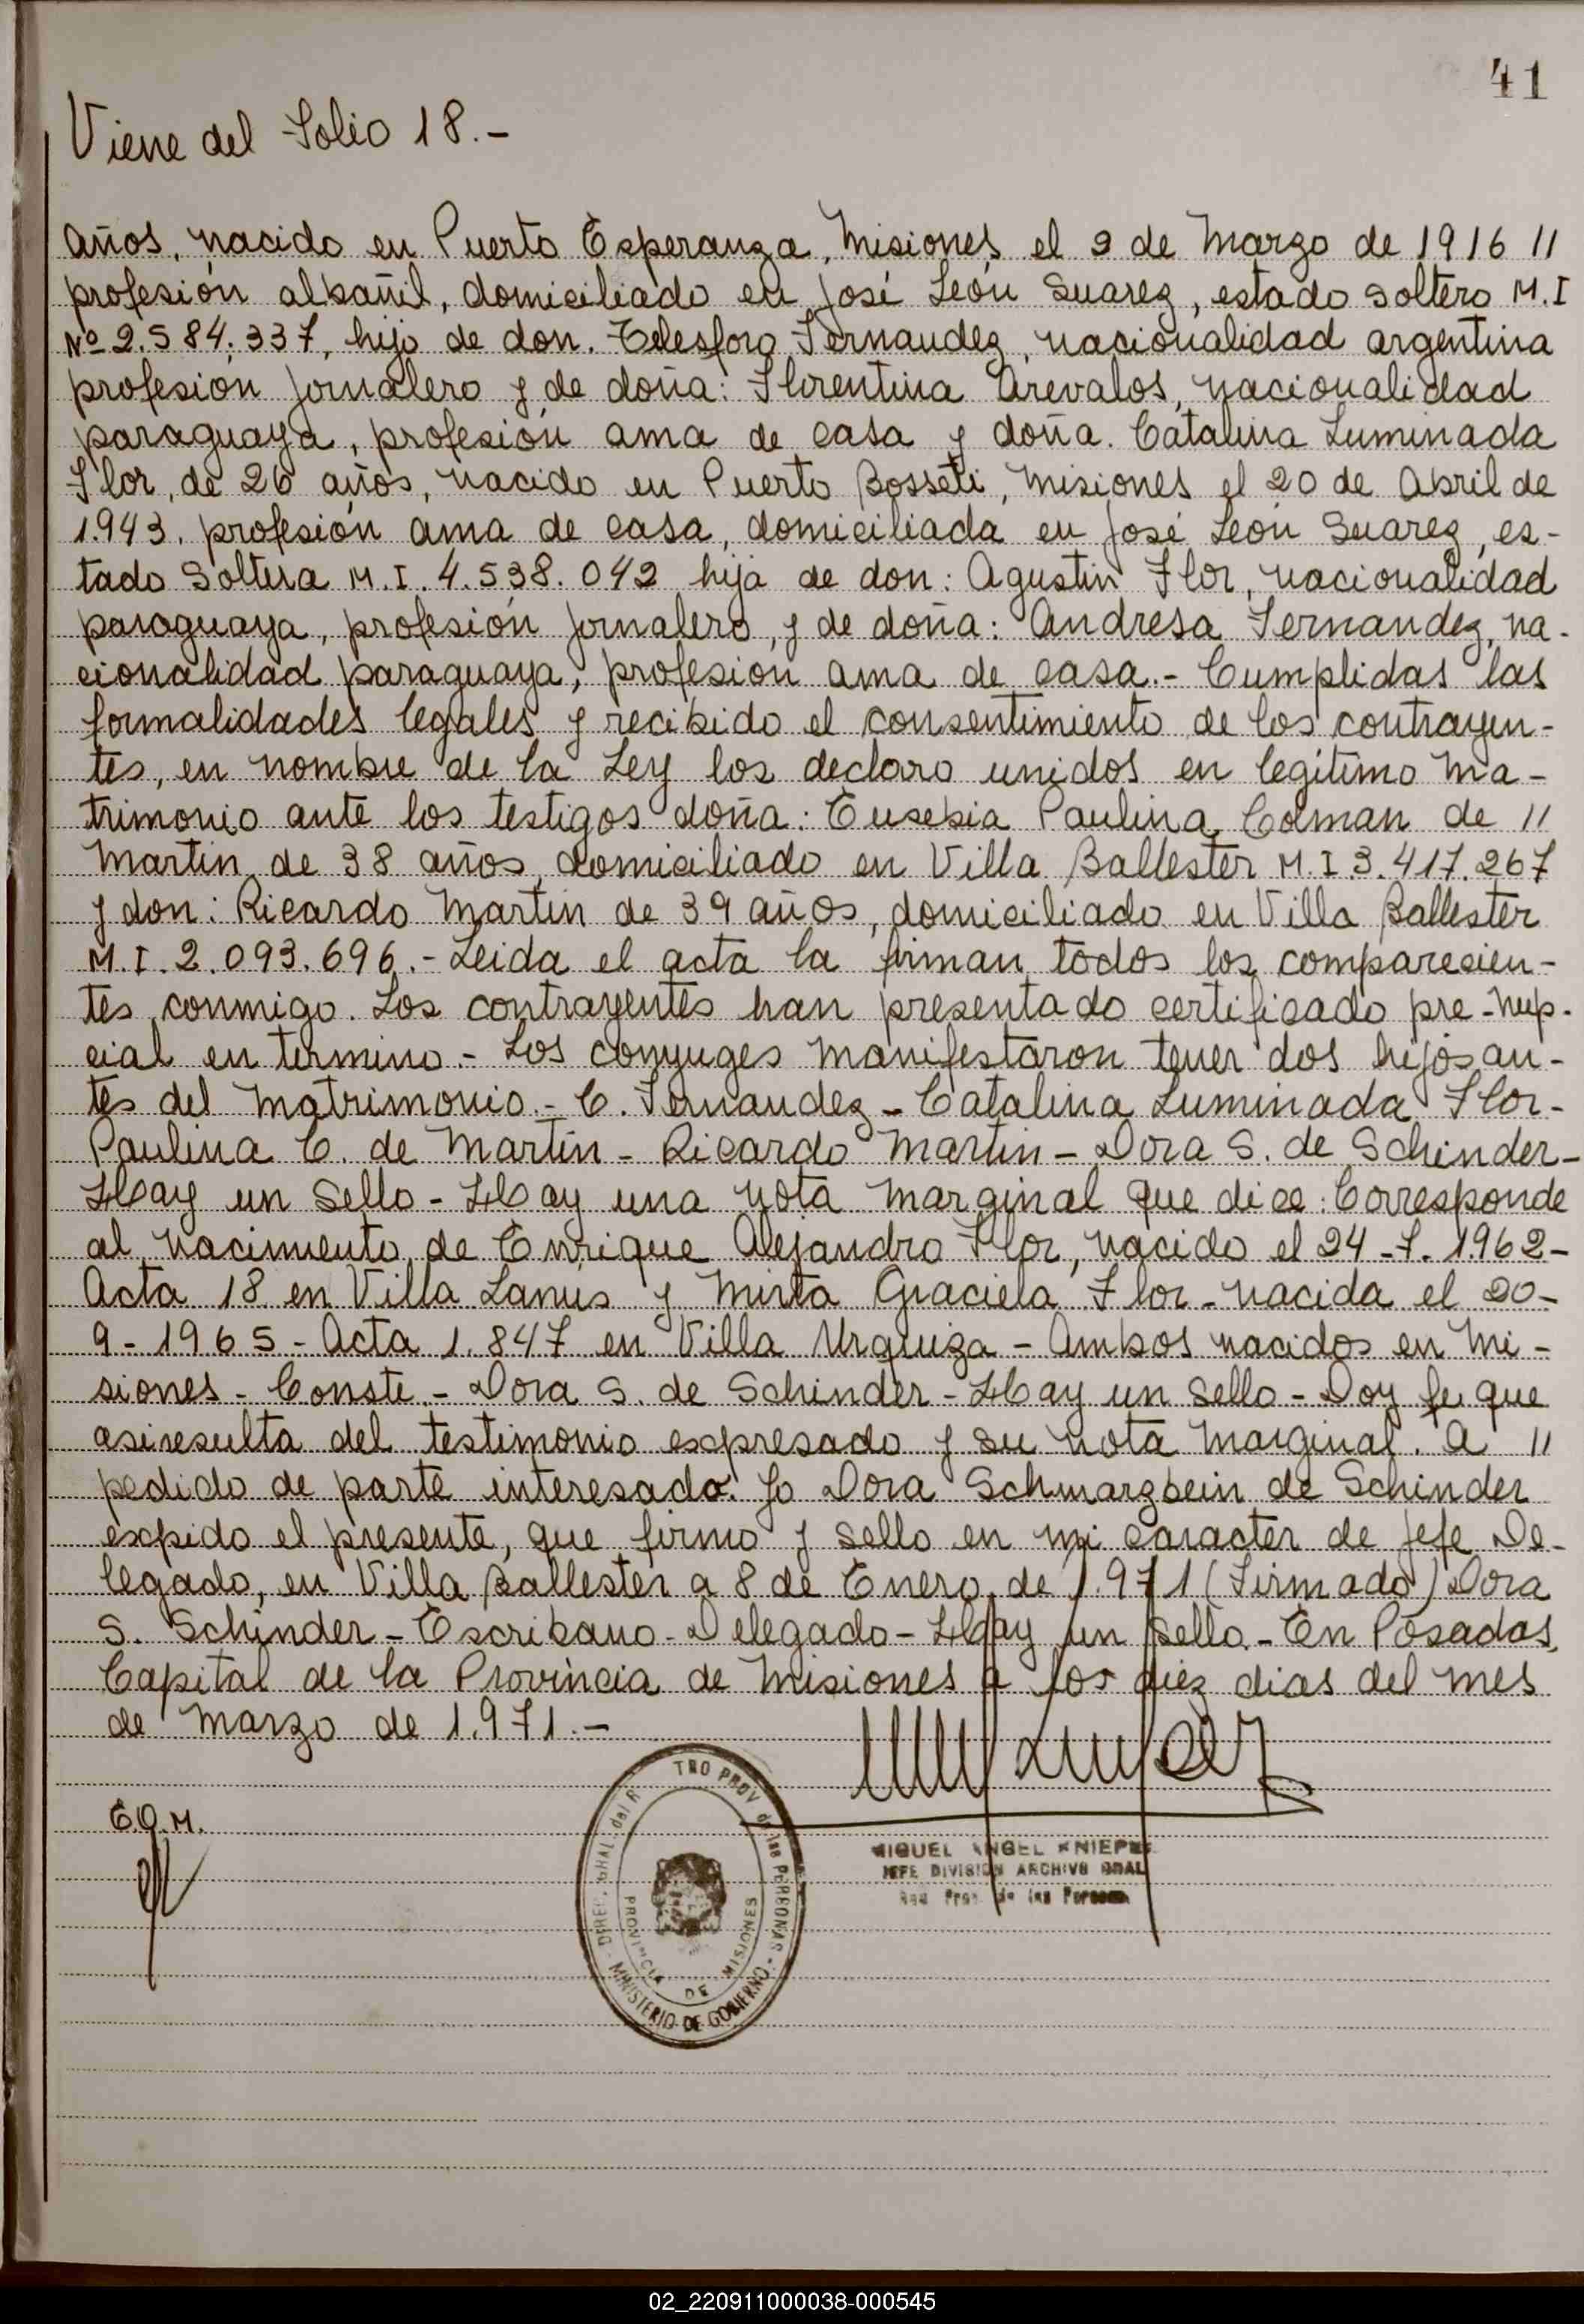 41
Viene del Folio 18.-
años, nacido en Puerto Esperanza, Misiones el 9 de Marzo de 1916 //
profesión albañil, domiciliado en José León Suarez, estado soltero M.I
Nº 2.584.337, hijo de don. Telesforo Fernandez, nacionalidad argentina
profesión jornalero y de doña: Florentina Arevalos, nacionalidad
paraguaya, profesión ama de casa y doña. Catalina Luminada
Flor, de 26 años, nacido en Puerto Bosseti, Misiones el 20 de Abril de
1.943. profesión ama de casa, domiciliada en José León Suarez, es-
tado soltera M.I. 4.538.042 hija de don: Agustin Flor, nacionalidad
paraguaya, profesión jornalero, y de doña: Andresa Fernandez, na-
cionalidad paraguaya, profesión ama de casa.- Cumplidas las
formalidades legales y recibido el consentimiento de los contrayen-
tes, en nombre de la Ley los declaro unidos en legítimo Ma-
trimonio ante los testigos doña: Eusebia Paulina Colman de //
Martin de 38 años, domiciliado en Villa Ballester M.I.3.417.267
y don: Ricardo Martin de 39 años, domiciliado en Villa Ballester
M.I.2.093.696.- Leida el acta la firman todos los comparecien-
tes conmigo. Los contrayentes han presentado certificado pre-nup-
cial en termino.- Los conyuges manifestaron tener dos hijos an-
tes del matrimonio.- C. Fernandez - Catalina Luminada Flor-
Paulina C. de Martin - Ricardo Martin - Dora S. de Schinder-
Hay un sello - Hay una nota marginal que dice: Corresponde
al nacimiento de Enrique Alejandro Flor, nacido el 24-7-1962-
Acta 18 en Villa Lanús y Mirta Graciela Flor - nacida el 20-
9-1965 - Acta 1.847 en Villa Urquiza - Ambos nacidos en Mi-
siones - Conste.- Dora S. de Schinder - Hay un sello - Doy fe que
asi resulta del testimonio expresado y su nota marginal. A //
pedido de parte interesada. Yo Dora Schwarzbein de Schinder
expido el presente, que firmo y sello en mi caracter de Jefe De-
legado, en Villa Ballester a 8 de Enero de 1.971 (Firmado) Dora
S. Schinder - Escribano - Delegado - Hay un sello - En Posadas,
Capital de la Provincia de Misiones a los diez dias del mes
de Marzo de 1.971.-
E.O.M.
DIREC. GRAL. del R TRO PROV de las PERSONAS
PROVINCIA DE MISIONES
MINISTERIO DE GOBIERNO
MIGUEL ANGEL KNIEPE
JEFE DIVISION ARCHIVO GRAL
de las
02_220911000038-000545